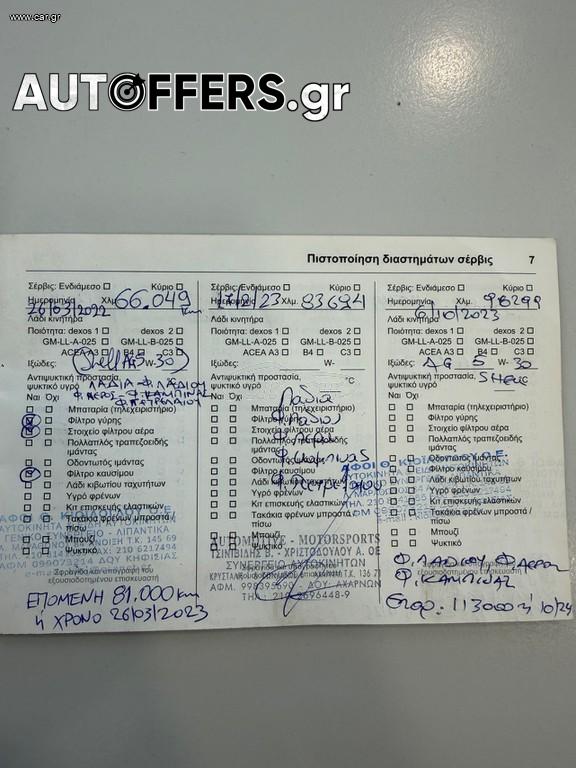 www.car.gr
AUTOFFERS.gr
Πιστοποίηση διαστημάτων σέρβις 7
Σέρβις: Ενδιάμεσο Κύριο
Ημερομηνία Χλμ.
26/03/2022 66.049 km
Λάδι κινητήρα
Ποιότητα: dexos 1 dexos 2
GM-LL-A-025 GM-LL-B-025
ACEA A3 B4 C3
Ιξώδες: Shell AG W-30
Αντιψυκτική προστασία,
ψυκτικό υγρό
ΛΑΔΙΑ - Φ. ΛΑΔΙΟΥ
Φ ΑΕΡΟΣ - Φ. ΚΑΜΠΙΝΑΣ
Φ ΠΕΤΡΕΛΑΙΟΥ
Ναι Όχι
Μπαταρία (τηλεχειριστήριο)
Φίλτρο γύρης
Στοιχείο φίλτρου αέρα
Πολλαπλός τραπεζοειδής
ιμάντας
Οδοντωτός ιμάντας
Φίλτρο καυσίμου
Λάδι κιβωτίου ταχυτήτων
Υγρό φρένων
Κιτ επισκευής ελαστικών
Τακάκια φρένων μπροστά /
πίσω
Μπουζί
Ψυκτικό
ΛΙΠΑΝΤΙΚΑ
ΑΦΜ 099073214 ΔΟΥ ΚΗΦΙΣΙΑΣ
Σφραγίδα και υπογραφή του
εξουσιοδοτημένου επισκευαστή
ΕΠΟΜΕΝΗ 81.000 km
ή ΧΡΟΝΟ 26/03/2023
Σέρβις: Ενδιάμεσο Κύριο
Ημερομηνία Χλμ. 83694
Λάδι κινητήρα
Ποιότητα: dexos 1 dexos 2
GM-LL-A-025 GM-LL-B-025
ACEA A3 B4 C3
Ιξώδες: W-
Αντιψυκτική προστασία, °C
ψυκτικό υγρό
Ναι Όχι
Λαδια
Φ λαδιου
Φ αερος
Φ καμπινας
Φ πετρελαιου
Μπαταρία (τηλεχειριστήριο)
Φίλτρο γύρης
Στοιχείο φίλτρου αέρα
Πολλαπλός τραπεζοειδής
ιμάντας
Οδοντωτός ιμάντας
Φίλτρο καυσίμου
Λάδι κιβωτίου ταχυτήτων
Υγρό φρένων
Κιτ επισκευής ελαστικών
Τακάκια φρένων μπροστά /
πίσω
Μπουζί
Ψυκτικό
MOTORSPORTS
ΤΣΙΜΙΒΙΔΗΣ Β. - ΧΡΙΣΤΟΔΟΥΛΟΥ Α. ΟΕ
ΣΥΝΕΡΓΕΙΟ ΑΥΤΟΚΙΝΗΤΩΝ
ΔΟΥ. ΑΧΑΡΝΩΝ
Σέρβις: Ενδιάμεσο Κύριο
Ημερομηνία Χλμ. 98299
/10/2023
Λάδι κινητήρα
Ποιότητα: dexos 1 dexos 2
GM-LL-A-025 GM-LL-B-025
ACEA A3 B4 C3
Ιξώδες: AG 5 W- 30
Αντιψυκτική προστασία,
ψυκτικό υγρό
Ναι Όχι
Μπαταρία (τηλεχειριστήριο)
Φίλτρο γύρης
Στοιχείο φίλτρου αέρα
Πολλαπλός τραπεζοειδής
ιμάντας
Οδοντωτός ιμάντας
Φίλτρο καυσίμου
Λάδι κιβωτίου ταχυτήτων
Υγρό φρένων
Κιτ επισκευής ελαστικών
Τακάκια φρένων μπροστά /
πίσω
Μπουζί
Ψυκτικό
Φ. ΛΑΔΙΟΥ Φ ΑΕΡΟΣ
Φ. ΚΑΜΠΙΝΑΣ
εξουσιοδοτημένου επισκευαστή
113000 ή 10/24